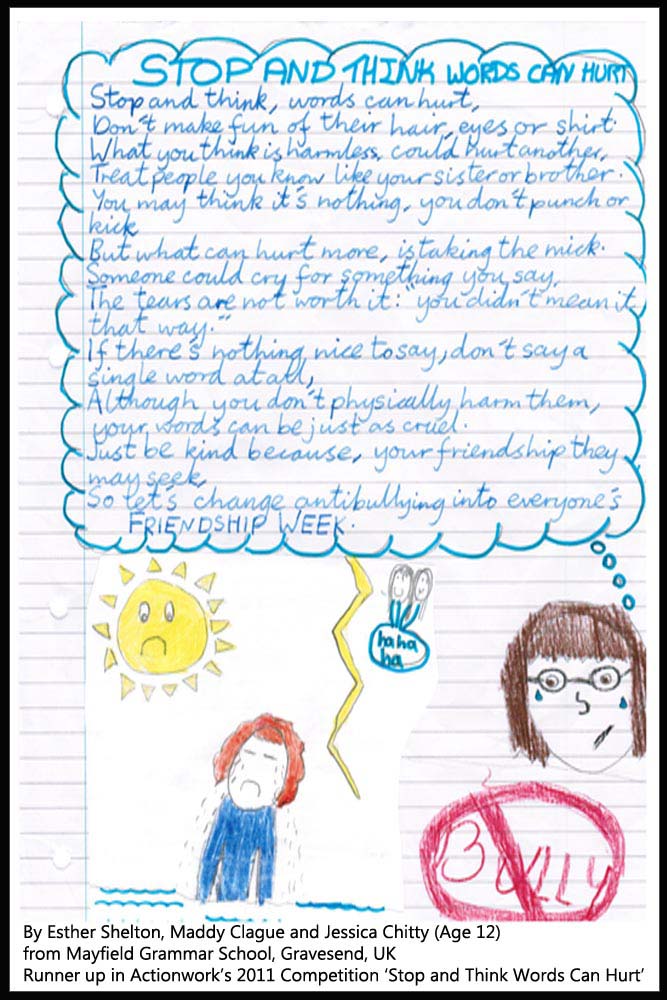 STOP AND THINK WORDS CAN HURT
Stop and think, words can hurt,
Don't make fun of their hair, eyes or shirt.
What you think is harmless, could hurt another,
Treat people you know like your sister or brother.
You may think it's nothing, you don't punch or
kick,
But what can hurt more, is taking the mick.
Someone could cry for something you say,
The tears are not worth it: "you didn't mean it
that way."
If there's nothing nice to say, don't say a
single word at all,
Although you don't physically harm them,
your words can be just as cruel.
Just be kind because, your friendship they
may seek,
So let's change antibullying into everyone's
FRIENDSHIP WEEK.
ha ha
ha
BULLY
By Esther Shelton, Maddy Clague and Jessica Chitty (Age 12)
from Mayfield Grammar School, Gravesend, UK
Runner up in Actionwork's 2011 Competition 'Stop and Think Words Can Hurt'